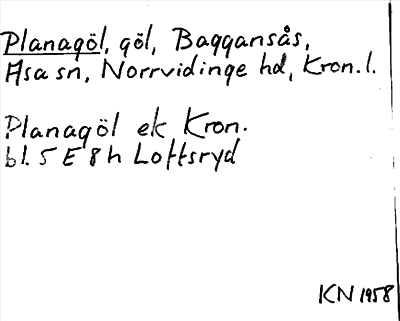 Planagöl, göl, Baggansås,
Asa sn, Norrvidinge hd, Kron.l.
Planagöl ek Kron.
bl. 5 E 8 h Loftsryd
KN 1958